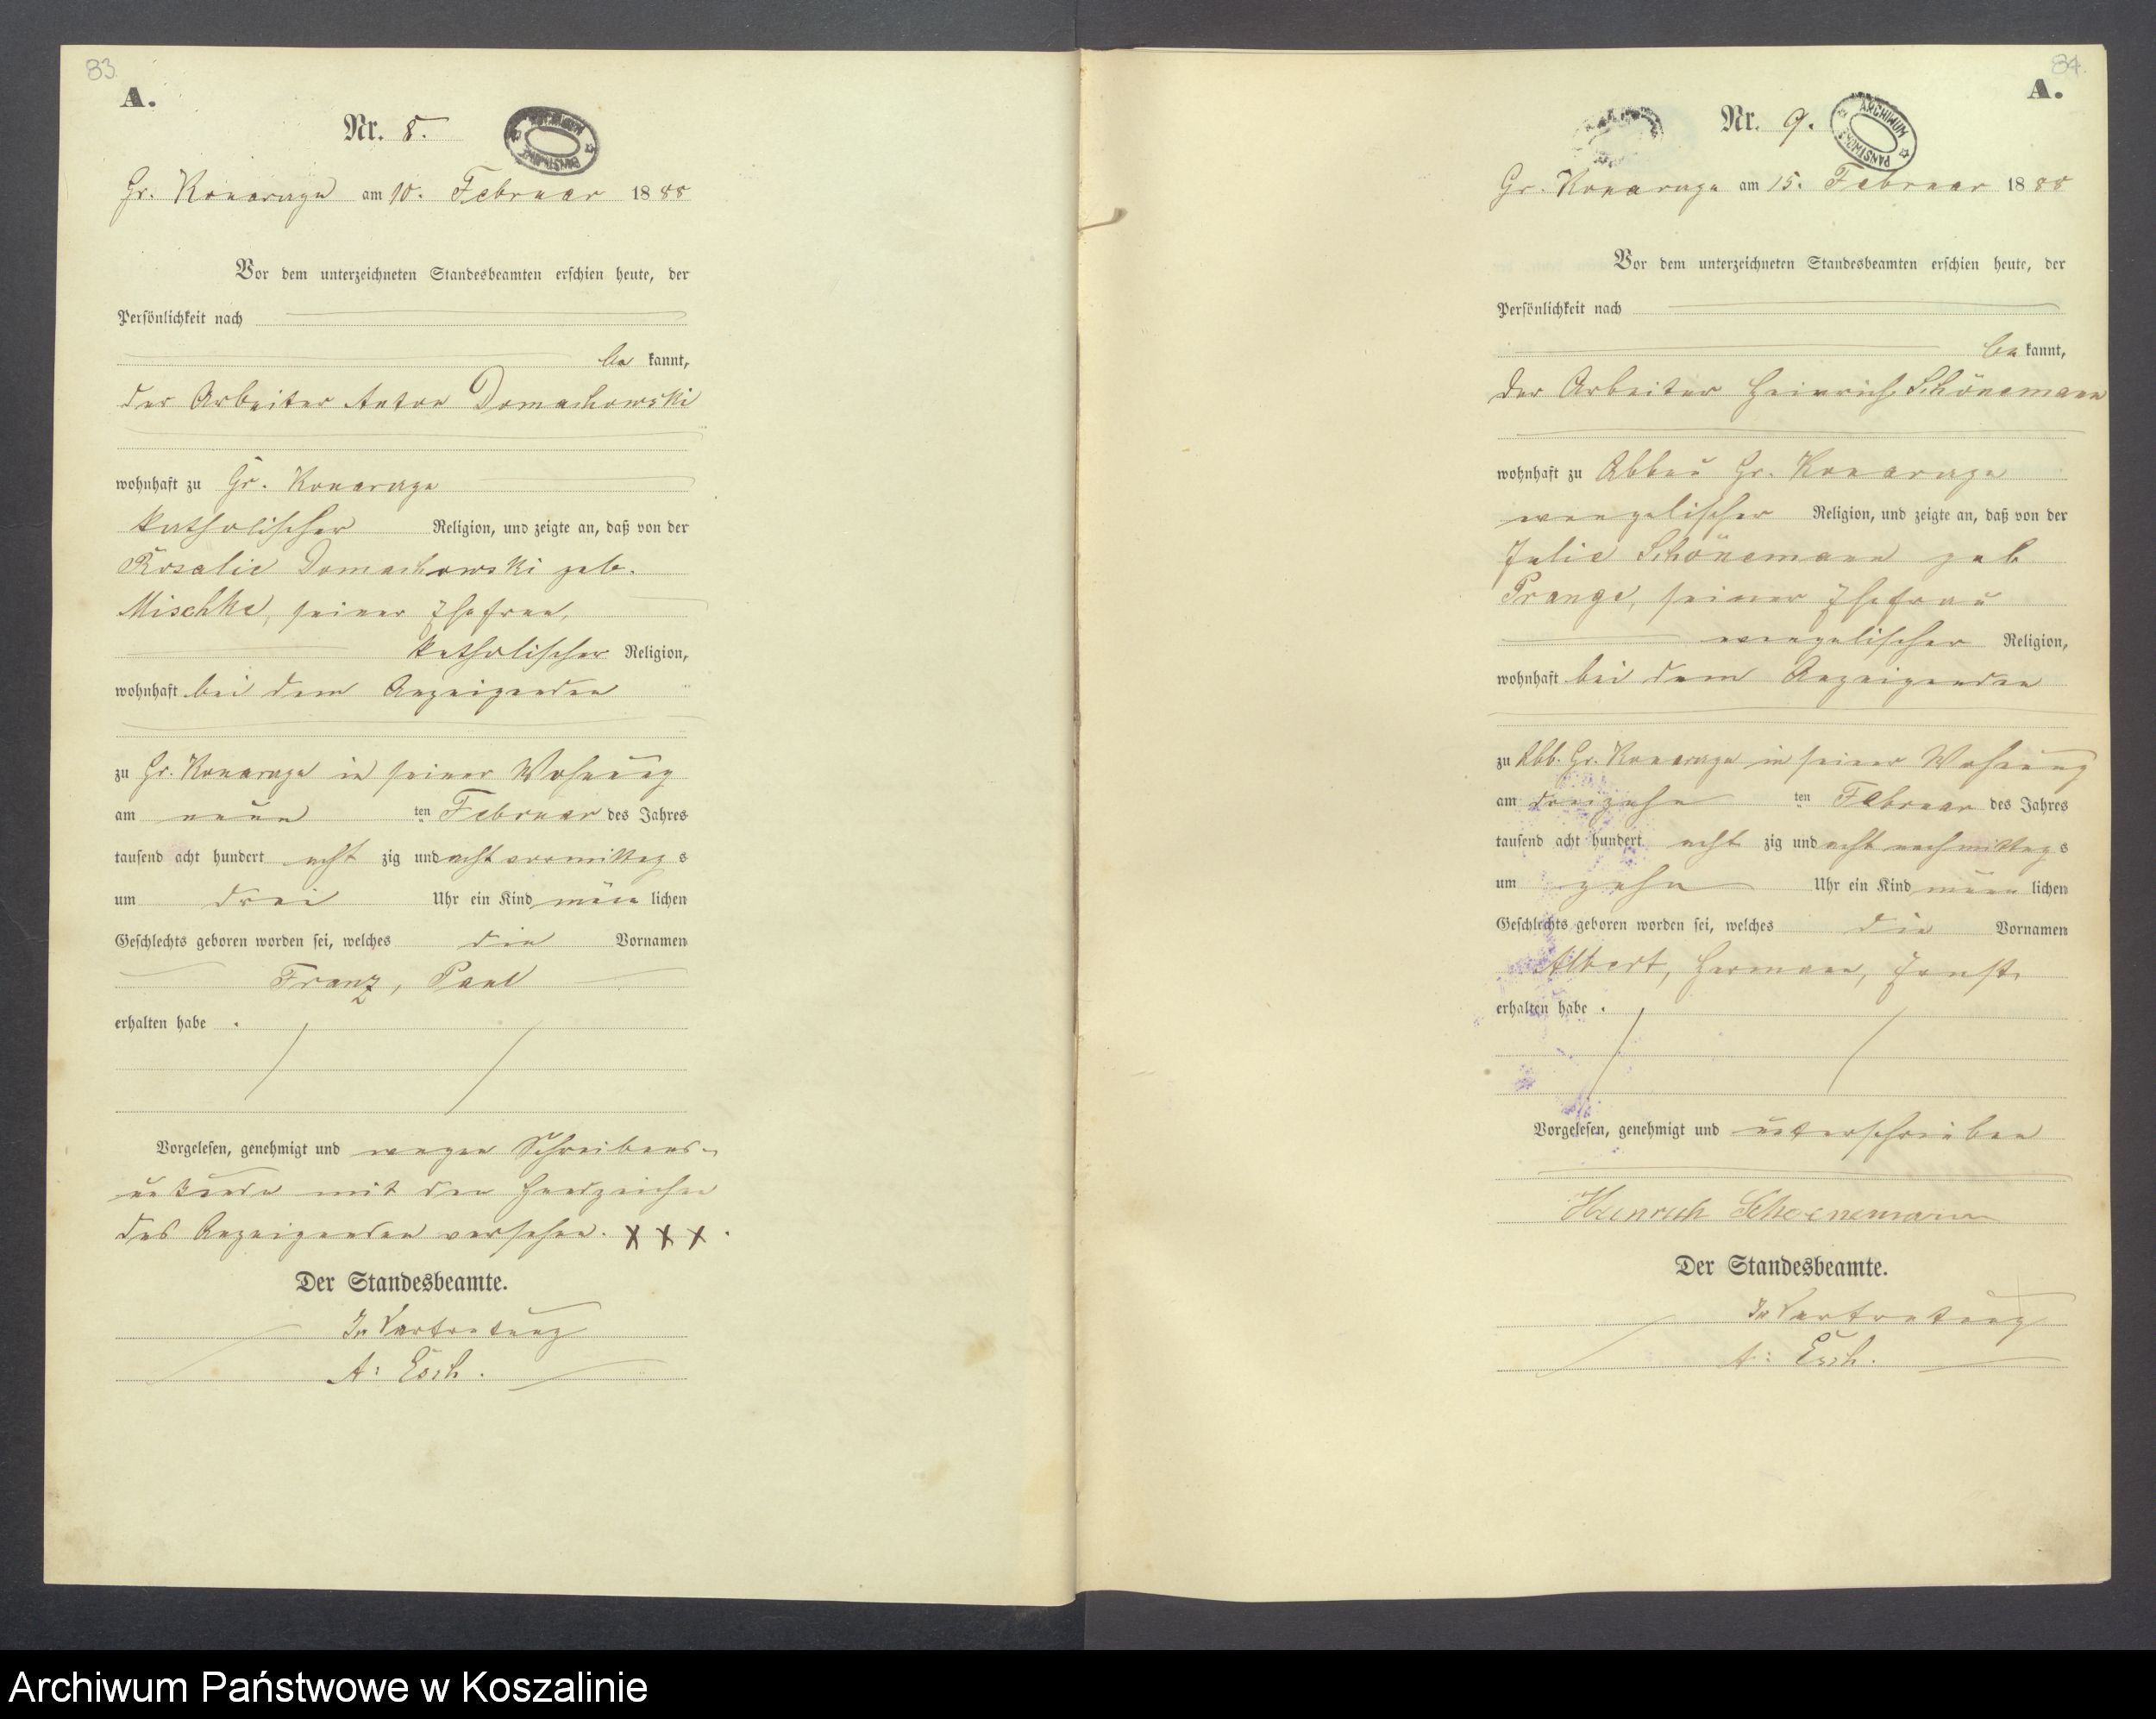 83.
A.
Nr. 8.
Gr. Konarzyn am 10. Februar 1888
Vor dem unterzeichneten Standesbeamten erschien heute, der
Persönlichkeit nach
be kannt,
der Arbeiter Anton Domachowski
wohnhaft zu Gr. Konarzyn
katholischer Religion, und zeigte an, daß von der
Rosalie Domachowski geb.
Mischke, seiner Ehefrau,
katholischer Religion,
wohnhaft bei dem Anzeigenden
zu Gr. Konarzyn in seiner Wohnung
am neun ten Februar des Jahres
tausend acht hundert acht zig und acht vormittag s
um drei Uhr ein Kind männ lichen
Geschlechts geboren worden sei, welches die Vornamen
Franz, Paul
erhalten habe .
Vorgelesen, genehmigt und wegen Schreibens-
unkunde mit den Handzeichen
des Anzeigenden versehen. XXX.
Der Standesbeamte.
In Vertretung
A: Esch.
84.
A.
Nr. 9.
ARCHIWUM PAŃSTWOWE
Gr. Konarzyn am 15. Februar 1888
Vor dem unterzeichneten Standesbeamten erschien heute, der
Persönlichkeit nach
be kannt,
der Arbeiter Heinrich Schönemann
wohnhaft zu Abbau Gr. Konarzyn
evangelischer Religion, und zeigte an, daß von der
Julie Schönemann geb
Prange, seiner Ehefrau
evangelischer Religion,
wohnhaft bei dem Anzeigenden
zu Abb. Gr. Konarzyn in seiner Wohnung
am dreizehn ten Februar des Jahres
tausend acht hundert acht zig und acht nachmittag s
um zehn Uhr ein Kind männ lichen
Geschlechts geboren worden sei, welches die Vornamen
Albert, Hermann, Ernst,
erhalten habe .
Vorgelesen, genehmigt und unterschrieben
Heinrich Schoenemann
Der Standesbeamte.
In Vertretung
A: Esch.
Archiwum Państwowe w Koszalinie